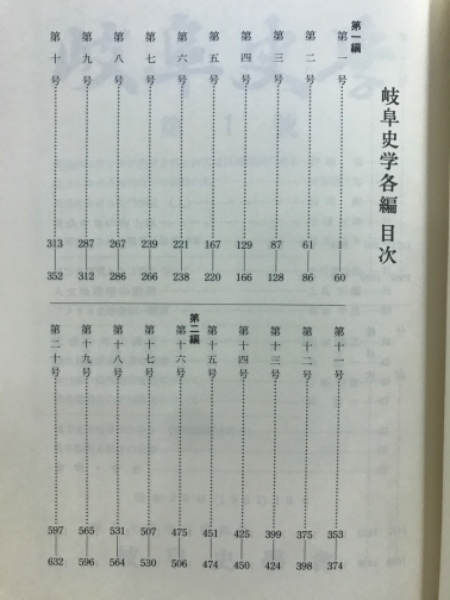 岐阜史学各編 目次
第一編
第一号……1―60
第二号……61―86
第三号……87―128
第四号……129―166
第五号……167―220
第六号……221―238
第七号……239―266
第八号……267―286
第九号……287―312
第十号……313―352
第十一号……353―374
第十二号……375―398
第十三号……399―424
第十四号……425―450
第十五号……451―474
第二編
第十六号……475―506
第十七号……507―530
第十八号……531―564
第十九号……565―596
第二十号……597―632